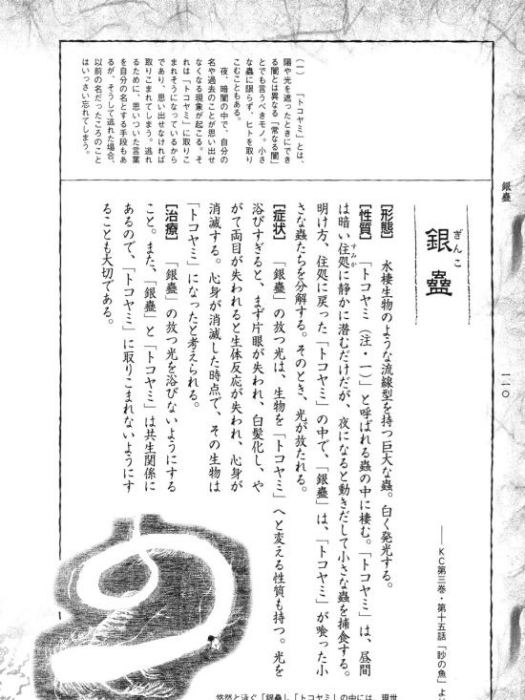 銀蠱
一一〇
ぎんこ
銀蠱
――KC第三巻・第十五話「眇の魚」よ
【形態】 水棲生物のような流線型を持つ巨大な蟲。白く発光する。
【性質】 「トコヤミ(注・一)」と呼ばれる蟲の中に棲む。「トコヤミ」は、昼間
すみか
は暗い住処に静かに潜むだけだが、夜になると動きだして小さな蟲を捕食する。
明け方、住処に戻った「トコヤミ」の中で、「銀蠱」は、「トコヤミ」が喰った小
さな蟲たちを分解する。そのとき、光が放たれる。
【症状】 「銀蠱」の放つ光は、生物を「トコヤミ」へと変える性質も持つ。光を
浴びすぎると、まず片眼が失われ、白髪化し、や
がて両目が失われると生体反応が失われ、心身が
消滅する。心身が消滅した時点で、その生物は
「トコヤミ」になったと考えられる。
【治療】 「銀蠱」の放つ光を浴びないようにする
こと。また、「銀蠱」と「トコヤミ」は共生関係に
あるので、「トコヤミ」に取りこまれないようにす
ることも大切である。
(一) 「トコヤミ」とは、
陽や光を遮ったときにでき
る闇とは異なる「常なる闇」
とでも言うべきモノ。小さ
な蟲に限らず、ヒトを取り
こむこともある。
夜、暗闇の中で、自分の
名や過去のことが思い出せ
なくなる現象が起こる。そ
れは「トコヤミ」に取りこ
まれそうになっているから
であり、思い出せなければ
取りこまれてしまう。逃れ
るために、思いついた言葉
を自分の名とする手段もあ
るが、そうして逃れた場合、
以前の名だったころのこと
はいっさい忘れてしまう。
悠然と泳ぐ「銀蠱」。「トコヤミ」の中には、現世